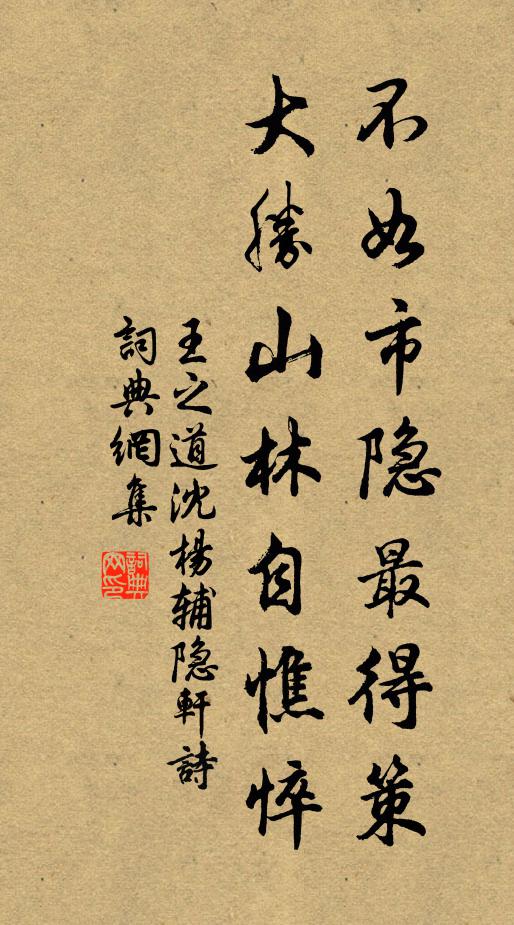 不如市隐最得策
大勝山林自憔悴
王之道沈楊辅隐軒詩
詞典網集
詞典網印